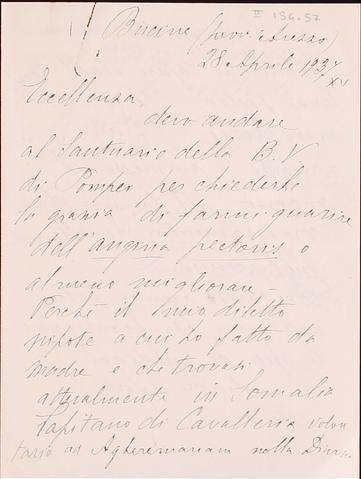 II 156.57
Bucine (prov. Arezzo)
28 Aprile 1937
XV
Eccellenza
devo andare
al Santuario della B. V.
di Pompei per chiederle
la grazia di farmi guarire
dell'angina pectoris o
almeno migliorare –
Perchè il mio diletto
nipote a cui ho fatto da
madre e che trovasi
attualmente in Somalia
Capitano di Cavalleria volon
tario ad Agheremariam nella Divis.